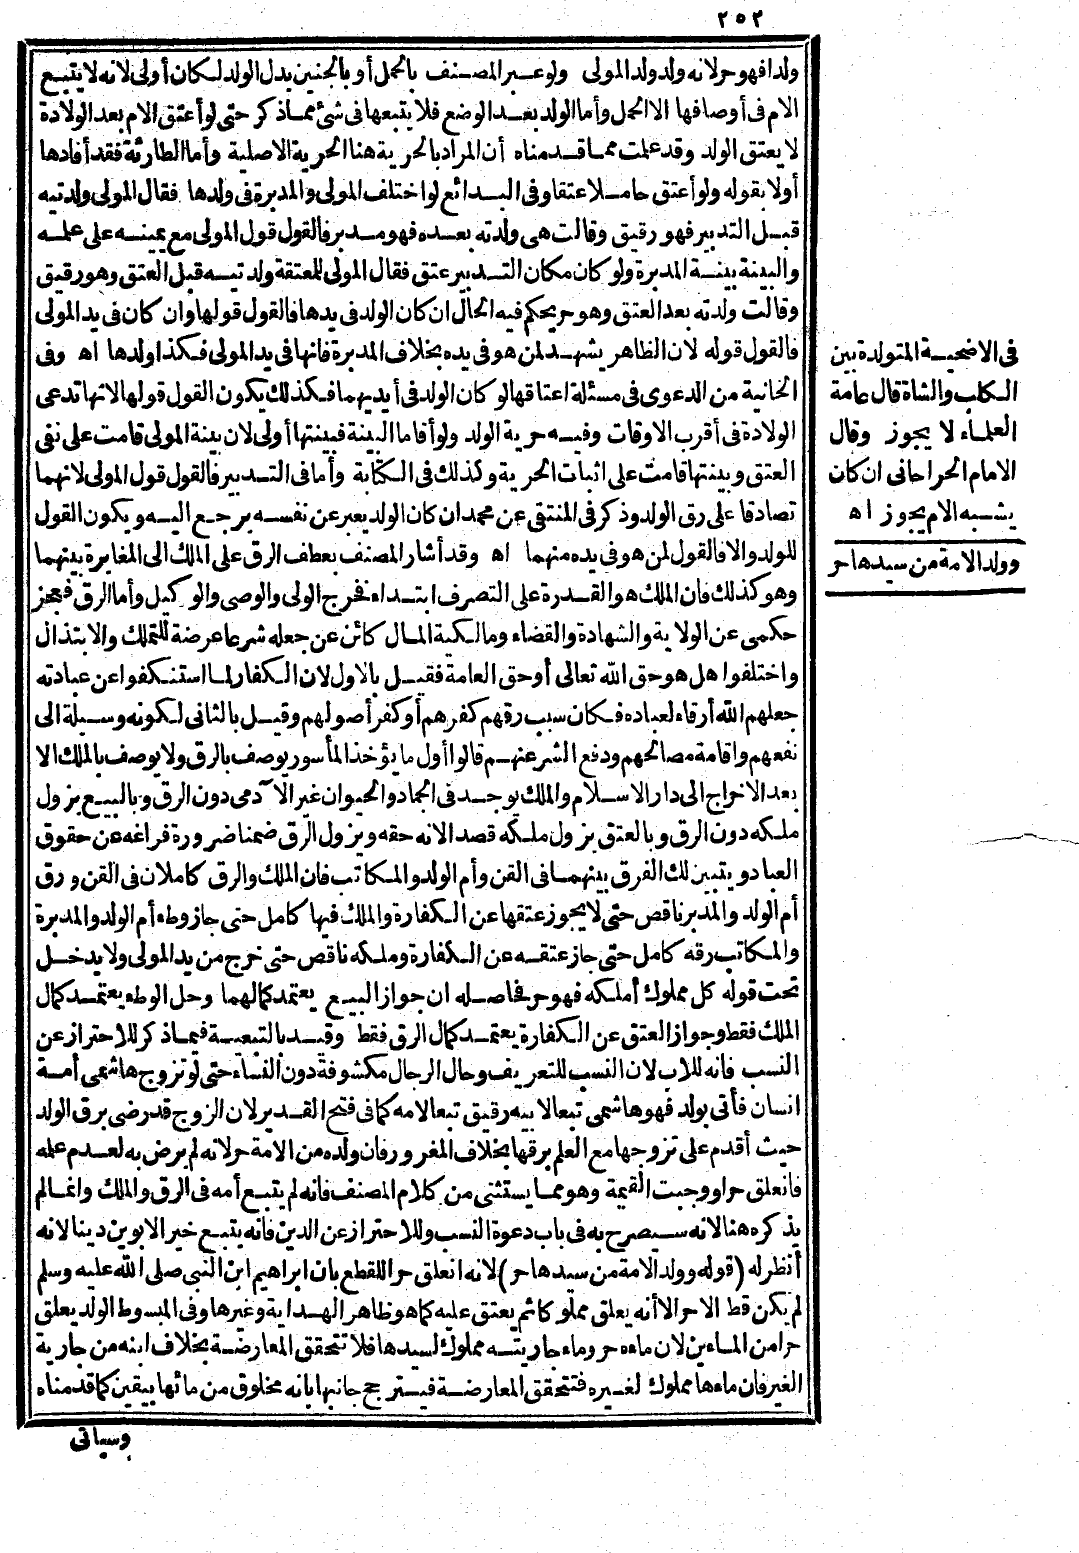 ٢٥٢
ولدا فهو حر لانه ولد ولد المولى ولو عبر المصنف بالحمل أو بالجنين بدل الولد لكان أولى لانه لا يتبع
الام فى أوصافها الا الحمل وأما الولد بعد الوضع فلا يتبعها فى شئ مما ذكر حتى لو أعتق الام بعد الولادة
لا يعتق الولد وقد علمت مما قدمناه أن المراد بالحرية هنا الحرية الاصلية وأما الطارئة فقد أفادها
أولا بقوله ولو أعتق حاملا عتقا وفى البدائع لو اختلف المولى والمدبرة فى ولدها فقال المولى ولدتيه
قبل التدبير فهو رقيق وقالت هى ولدته بعده فهو مدبر فالقول قول المولى مع يمينه على علمه
والبينة بينة المدبرة ولو كان مكان التدبير عتق فقال المولى للمعتقة ولدتيه قبل العتق وهو رقيق
وقالت ولدته بعد العتق وهو حر يحكم فيه الحال ان كان الولد فى يدها فالقول قولها وان كان فى يد المولى
فالقول قوله لان الظاهر يشهد لمن هو فى يده بخلاف المدبرة فانها فى يد المولى فكذا ولدها اه وفى
الخانية من الدعوى فى مسئلة اعتاقها لو كان الولد فى أيديهما فكذلك يكون القول قولها لانها تدعى
الولادة فى أقرب الاوقات وفيه حرية الولد ولو أقاما البينة فبينتها أولى لان بينة المولى قامت على نفى
العتق وبينتها قامت على اثبات الحرية وكذلك فى الكتابة وأما فى التدبير فالقول قول المولى لانهما
تصادقا على رق الولد وذكر فى المنتقى عن محمد ان كان الولد يعبر عن نفسه يرجع اليه ويكون القول
للولد والا فالقول لمن هو فى يده منهما اه وقد أشار المصنف بعطف الرق على الملك الى المغايرة بينهما
وهو كذلك فان الملك هو القدرة على التصرف ابتداء فخرج الولى والوصى والوكيل وأما الرق فعجز
حكمى عن الولاية والشهادة والقضاء ومالكية المال كائن عن جعله شرعا عرضة للتملك والابتذال
واختلفوا هل هو حق الله تعالى أو حق العامة فقيل بالاول لان الكفار لما استنكفوا عن عبادته
جعلهم الله أرقاء لعباده فكان سبب رقهم كفرهم أو كفر أصولهم وقيل بالثانى لكونه وسيلة الى
نفعهم واقامة مصالحهم ودفع الشر عنهم قالوا أول ما يؤخذ المأسور يوصف بالرق ولا يوصف بالملك الا
بعد الاخراج الى دار الاسلام والملك يوجد فى الجماد والحيوان غير الآدمى دون الرق وبالبيع يزول
ملكه دون الرق وبالعتق يزول ملكه قصدا لانه حقه ويزول الرق ضمنا ضرورة فراغه عن حقوق
العباد ويتبين لك الفرق بينهما فى القن وأم الولد والمكاتب فان الملك والرق كاملان فى القن ورق
أم الولد والمدبر ناقص حتى لا يجوز عتقها عن الكفارة والملك فيها كامل حتى جاز وطء أم الولد والمدبرة
والمكاتب رقه كامل حتى جاز عتقه عن الكفارة وملكه ناقص حتى خرج من يد المولى ولا يدخل
تحت قوله كل مملوك أملكه فهو حر فحاصله ان جواز البيع يعتمد كمالهما وحل الوطء يعتمد كمال
الملك فقط وجواز العتق عن الكفارة يعتمد كمال الرق فقط وقيد بالتبعية فيما ذكر للاحتراز عن
النسب فانه للاب لان النسب للتعريف وحال الرجال مكشوفة دون النساء حتى لو تزوج هاشمى أمة
انسان فأتى بولد فهو هاشمى تبعا لابيه رقيق تبعا لامه كما فى فتح القدير لان الزوج قد رضى برق الولد
حيث أقدم على تزوجها مع العلم برقها بخلاف المغرور فان ولده من الامة حر لانه لم يرض به لعدم علمه
فانعلق حرا ووجبت القيمة وهو مما يستثنى من كلام المصنف فانه لم يتبع أمه فى الرق والملك وانما لم
يذكره هنا لانه سيصرح به فى باب دعوة النسب وللاحتراز عن الدين فانه يتبع خير الابوين دينا لانه
أنظر له (قوله وولد الامة من سيدها حر) لانه انعلق حر اللقطع بان ابراهيم ابن النبى صلى الله عليه وسلم
لم يكن قط الا حر الا أنه يعلق مملوكا ثم يعتق عليه كما هو ظاهر الهداية وغيرها وفى المبسوط الولد يعلق
حرا من الماءين لان ماءه حر وماء جاريته مملوك لسيدها فلا تتحقق المعارضة بخلاف ابنه من جارية
الغير فان ماءها مملوك لغيره فتتحقق المعارضة فيترجح جانبها بانه مخلوق من مائها بيقين كما قدمناه
وسيأتى
فى الاضحية المتولدة بين
الكلب والشاة قال عامة
العلماء لا يجوز وقال
الامام الحراحانى ان كان
يشبه الام يجوز اه
وولد الامة من سيدها حر